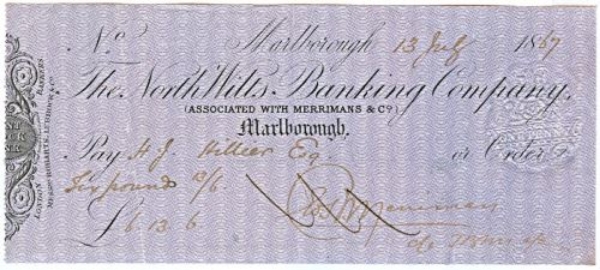 No. Marlborough 13 July 1867
The North Wilts Banking Company,
(ASSOCIATED WITH MERRIMANS & Co.)
Marlborough.
Pay H J Hillier Esq. or Order
Six pound 13/6.
£6.13.6 Merriman
LONDON BANKERS,
MESSRS. ROBARTS, LUBBOCK & Co.